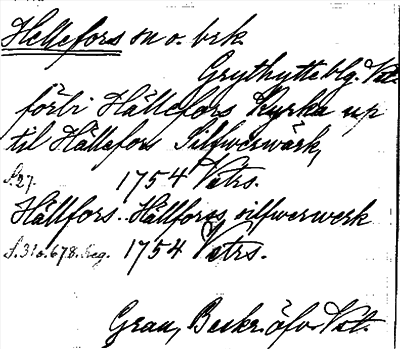 Hellefors sn o. brk.
Grythytteblg. Vstl.
förbi Hällefors Kyrka up
til Hällefors Silfwerwärk,
S. 27. 1754 Vstrs.
Hällfors. Hällfores silfwerwerk
S. 31 o. 678. Reg. 1754 Vstrs.
Grau, Beskr. öfv. Vstl.